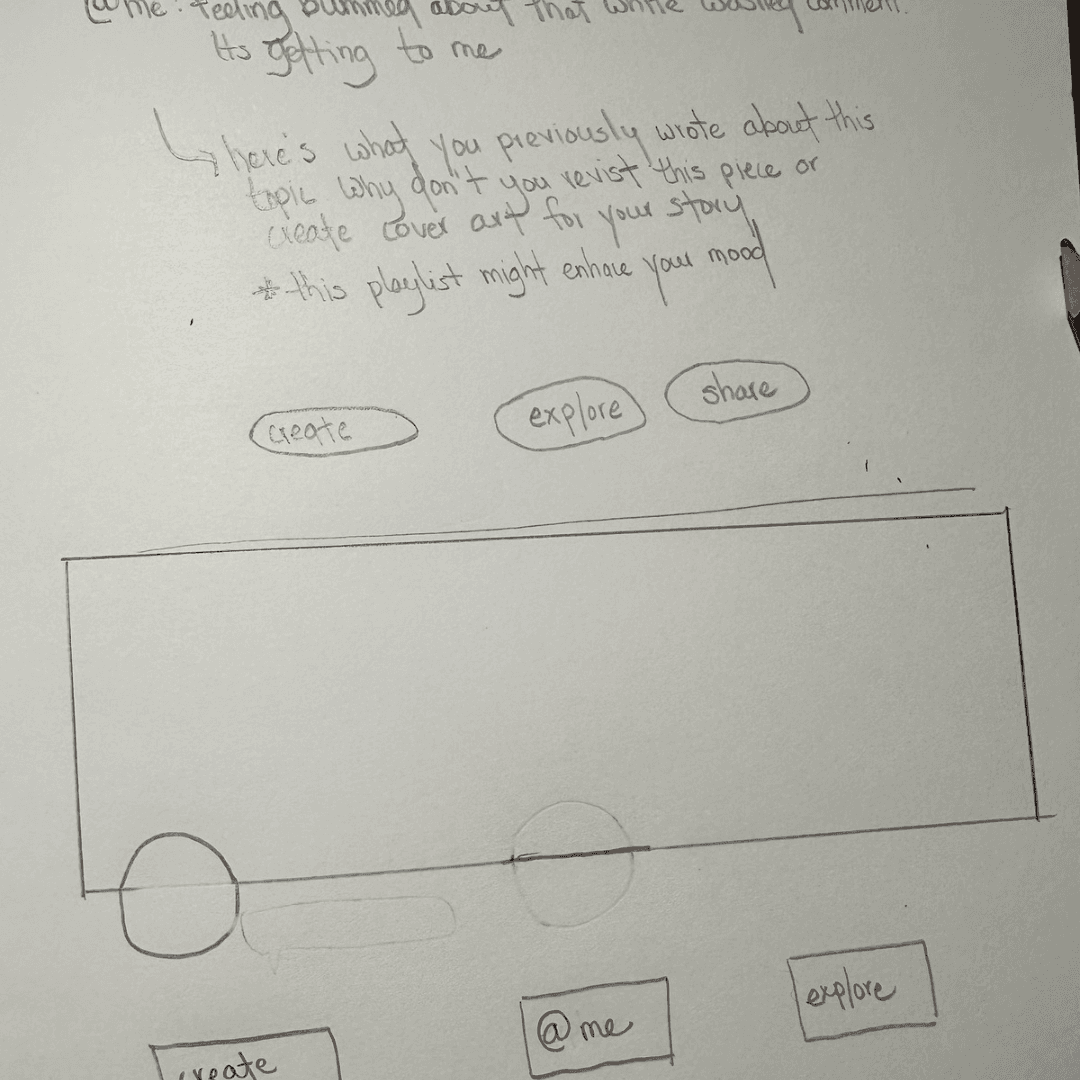 @me: feeling bummed about that white washed comment.
Its getting to me
here's what you previously wrote about this
topic why don't you revist this piece or
create cover art for your story
* this playlist might enhace your mood
create
explore
share
explore
@me
create